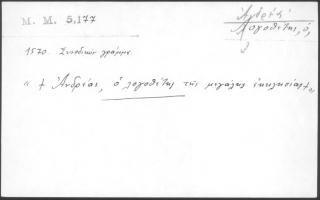 M. M. 5,177
Ἀνδρέας
Λογοθέτης, ὁ,
1570. Συνοδικὸν γράμμα.
" + Ἀνδρέας, ὁ λογοθέτης τῆς μεγάλης ἐκκλησίας +"